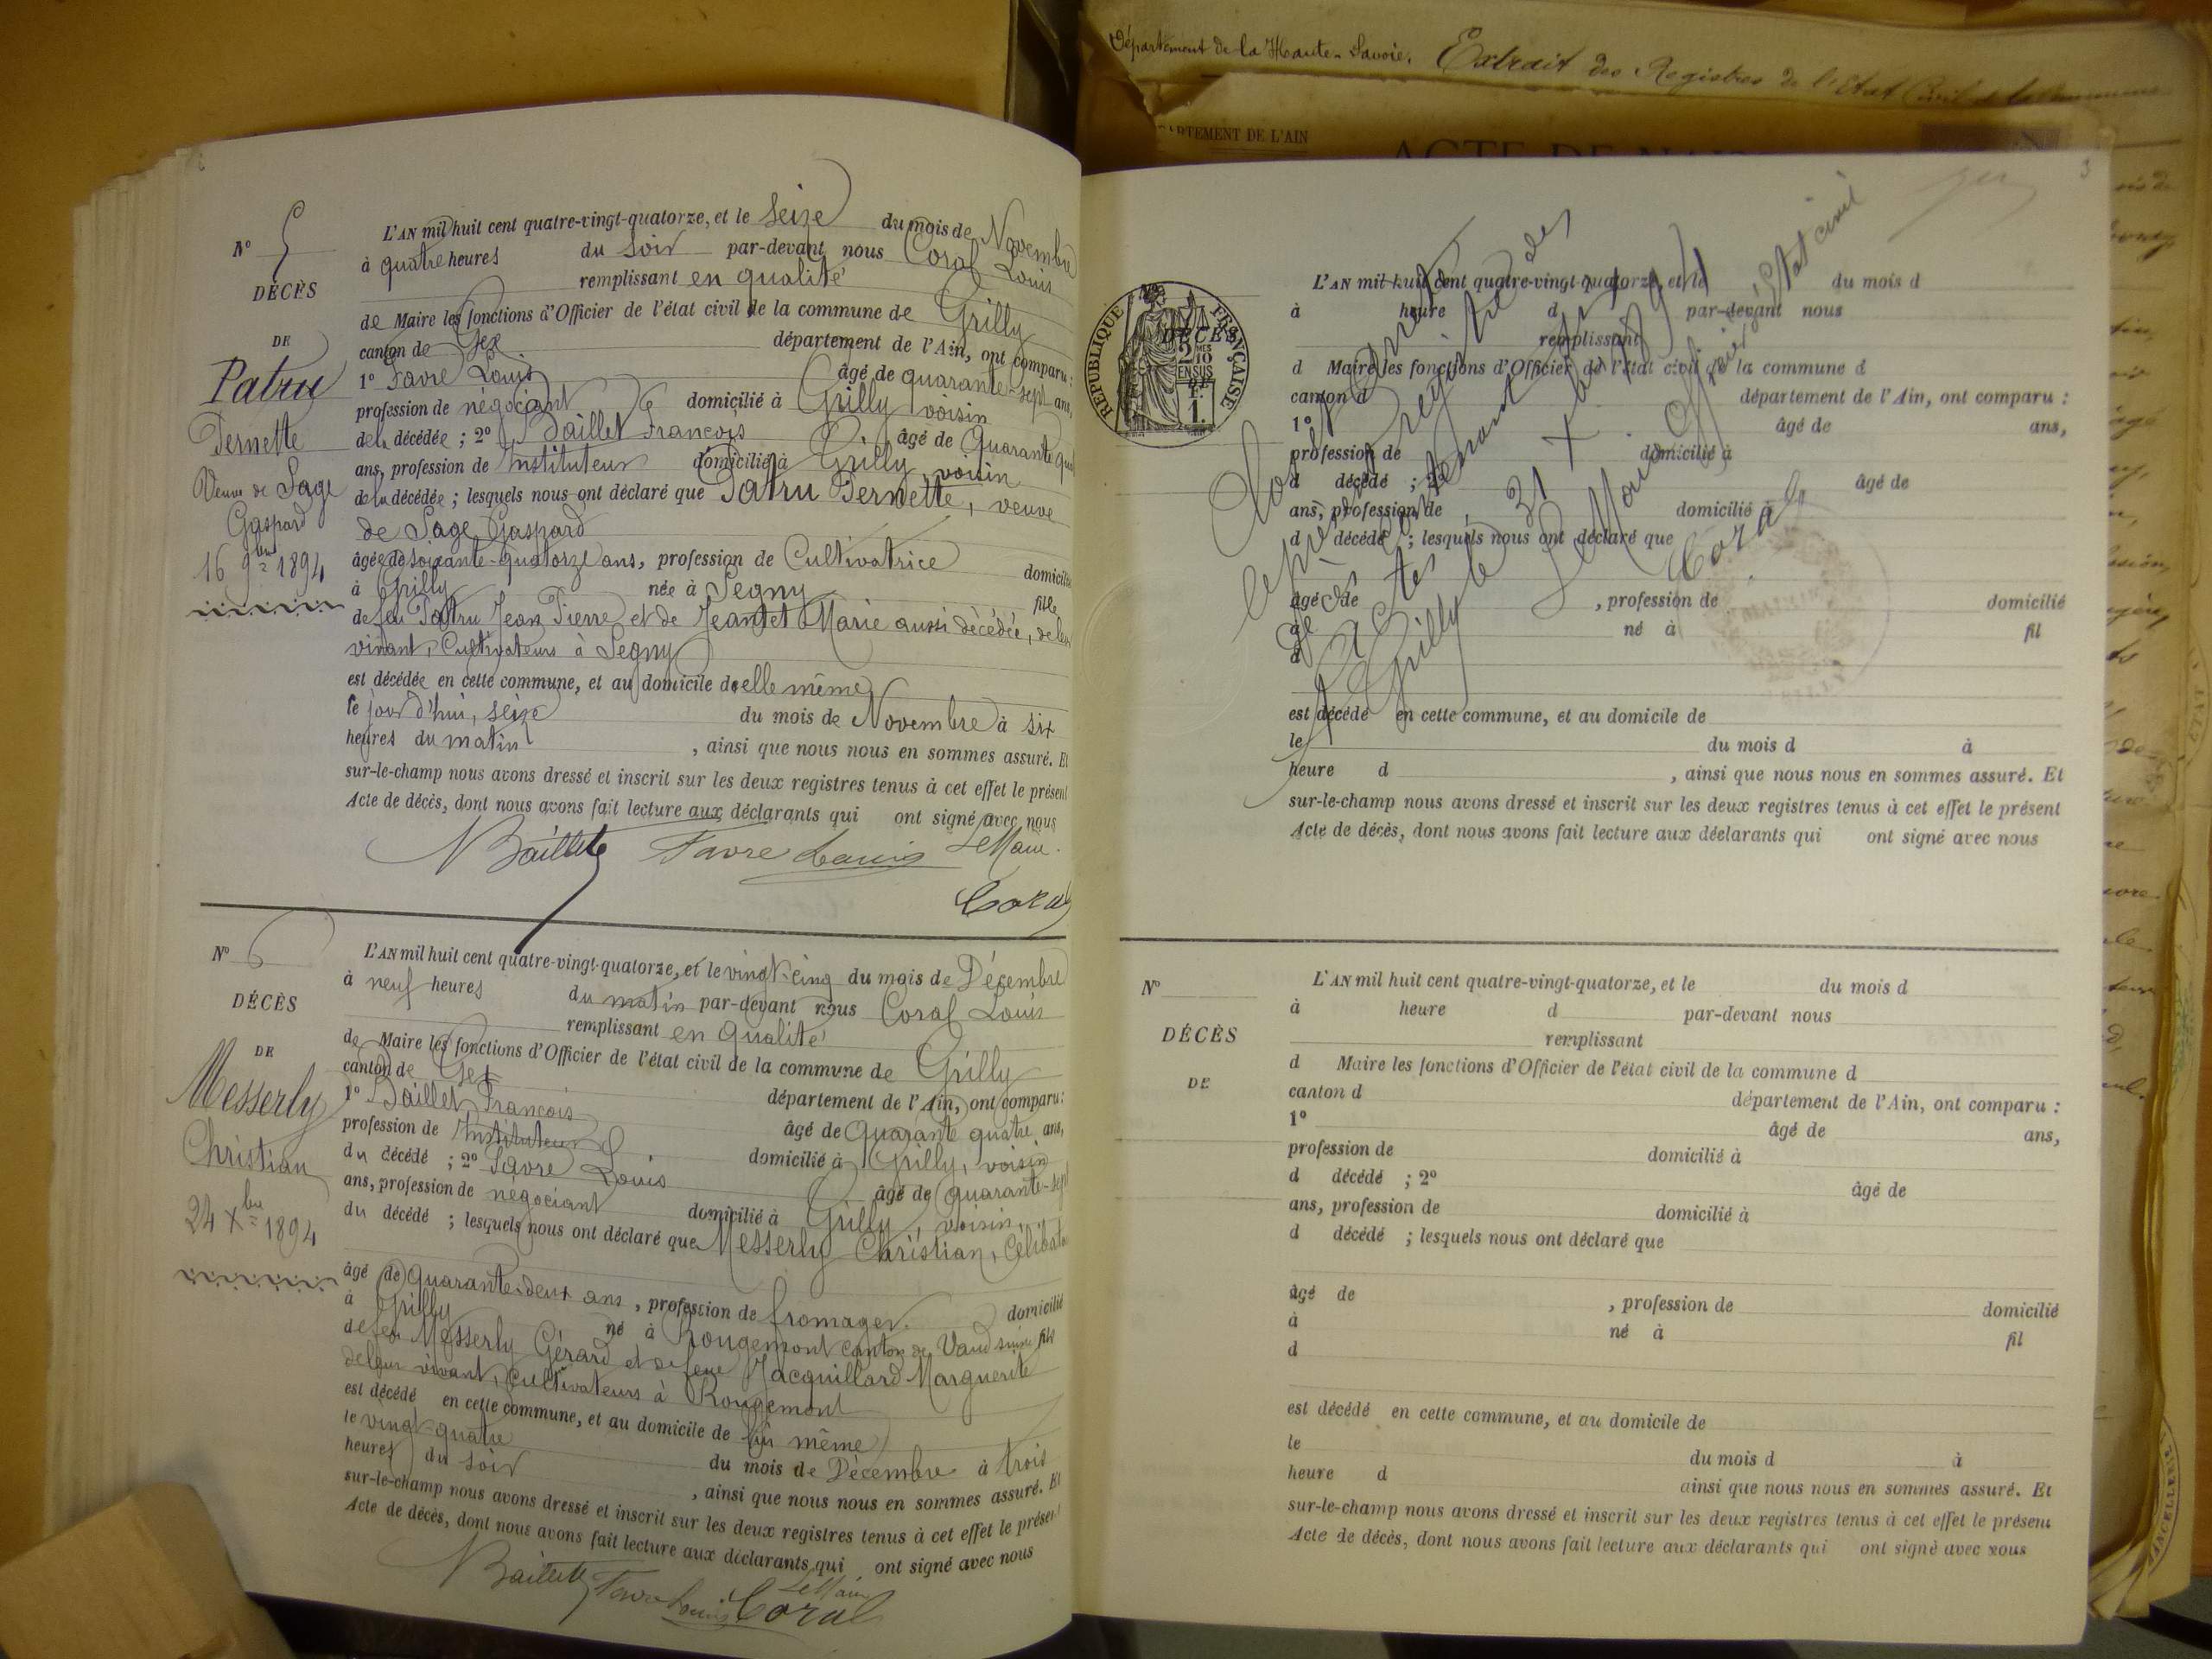 Département de la Haute-Savoie. Extrait des Registres de l'Etat Civil de la Commune
DÉPARTEMENT DE L'AIN
N° 5
DÉCÈS
DE
Patru
Pernette
Veuve de Sage
Gaspard
16 9bre 1894
L'AN mil huit cent quatre-vingt-quatorze, et le seize du mois de Novembre
à quatre heures du soir par-devant nous Coral Louis
remplissant en qualité
de Maire les fonctions d'Officier de l'état civil de la commune de Grilly
canton de Gex département de l'Ain, ont comparu :
1° Favre Louis âgé de quarante-sept ans,
profession de négociant domicilié à Grilly voisin
de la décédée ; 2° Baillet François âgé de Quarante quatre
ans, profession de Instituteur domicilié à Grilly, voisin
de la décédée ; lesquels nous ont déclaré que Patru Pernette, veuve
de Sage Gaspard
âgée de soixante-quatorze ans, profession de Cultivatrice domiciliée
à Grilly née à Segny fille
de feu Patru Jean Pierre et de Jeantet Marie aussi décédée, de leur
vivant, Cultivateurs à Segny
est décédée en cette commune, et au domicile de elle même
le jour d'hui, seize du mois de Novembre à six
heures du matin, ainsi que nous nous en sommes assuré. Et
sur-le-champ nous avons dressé et inscrit sur les deux registres tenus à cet effet le présent
Acte de décès, dont nous avons fait lecture aux déclarants qui ont signé avec nous
Baillet Favre Louis Le Maire
Coral
N° 6
DÉCÈS
DE
Messerly
Christian
24 Xbre 1894
L'AN mil huit cent quatre-vingt-quatorze, et le vingt-cinq du mois de Décembre
à neuf heures du matin par-devant nous Coral Louis
remplissant en qualité
de Maire les fonctions d'Officier de l'état civil de la commune de Grilly
canton de Gex département de l'Ain, ont comparu :
1° Baillet François âgé de Quarante quatre ans,
profession de Instituteur domicilié à Grilly, voisin
du décédé ; 2° Favre Louis âgé de quarante-sept
ans, profession de négociant domicilié à Grilly, voisin
du décédé ; lesquels nous ont déclaré que Messerly Christian, Célibataire
âgé de Quarante-deux ans, profession de fromager. domicilié
à Grilly né à Rougemont canton de Vaud suisse fils
de feu Messerly Gérard et de feue Jacquillard Marguerite
de leur vivant, Cultivateurs à Rougemont
est décédé en cette commune, et au domicile de lui même
le vingt-quatre du mois de Décembre à trois
heures du soir, ainsi que nous nous en sommes assuré. Et
sur-le-champ nous avons dressé et inscrit sur les deux registres tenus à cet effet le présent
Acte de décès, dont nous avons fait lecture aux déclarants qui ont signé avec nous
Baillet Favre Louis Le Maire Coral
3
RÉPUBLIQUE FRANÇAISE
2 MES 10 EN SUS
1 F.
N°
DÉCÈS
L'AN mil huit cent quatre-vingt-quatorze, et le du mois d
à heure d par-devant nous
remplissant
d Maire les fonctions d'Officier de l'état civil de la commune d
canton d département de l'Ain, ont comparu :
1° âgé de ans,
profession de domicilié à
d décédé ; 2° âgé de
ans, profession de domicilié à
d décédé ; lesquels nous ont déclaré que
âgé de , profession de domicilié
à né à fil
d
est décédé en cette commune, et au domicile de
le du mois d à
heure d , ainsi que nous nous en sommes assuré. Et
sur-le-champ nous avons dressé et inscrit sur les deux registres tenus à cet effet le présent
Acte de décès, dont nous avons fait lecture aux déclarants qui ont signé avec nous
Clos et arrêté
le présent registre des
décès contenant six
actes
A Grilly le 31 Xbre 1894
Le Maire Officier de l'Etat civil
Coral
N°
DÉCÈS
DE
L'AN mil huit cent quatre-vingt-quatorze, et le du mois d
à heure d par-devant nous
remplissant
d Maire les fonctions d'Officier de l'état civil de la commune d
canton d département de l'Ain, ont comparu :
1° âgé de ans,
profession de domicilié à
d décédé ; 2° âgé de
ans, profession de domicilié à
d décédé ; lesquels nous ont déclaré que
âgé de , profession de domicilié
à né à fil
d
est décédé en cette commune, et au domicile de
le du mois d à
heure d ainsi que nous nous en sommes assuré. Et
sur-le-champ nous avons dressé et inscrit sur les deux registres tenus à cet effet le présent
Acte de décès, dont nous avons fait lecture aux déclarants qui ont signé avec nous